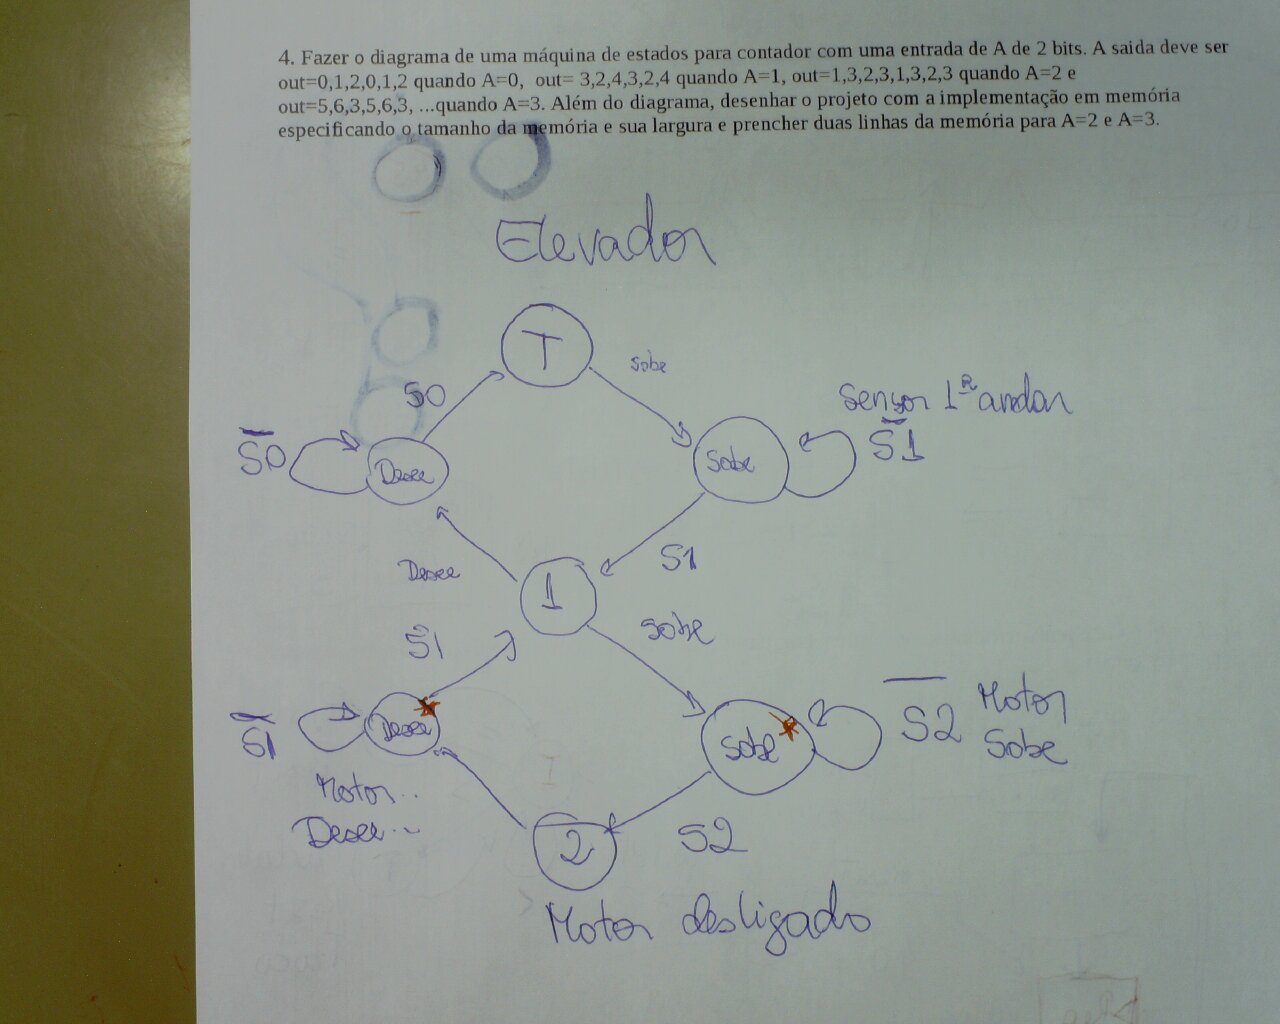 4. Fazer o diagrama de uma máquina de estados para contador com uma entrada de A de 2 bits. A saida deve ser
out=0,1,2,0,1,2 quando A=0, out= 3,2,4,3,2,4 quando A=1, out=1,3,2,3,1,3,2,3 quando A=2 e
out=5,6,3,5,6,3, ...quando A=3. Além do diagrama, desenhar o projeto com a implementação em memória
especificando o tamanho da memória e sua largura e prencher duas linhas da memória para A=2 e A=3.
Elevador
T
Sobe
S0
Sensor 1º andar
S̅0
Desce
Sobe
S̅1
Desce
1
S1
S1
Sobe
S̅1
Desce
Sobe
S̅2
Motor
Sobe
Motor..
Desce..
2
S2
Motor desligado